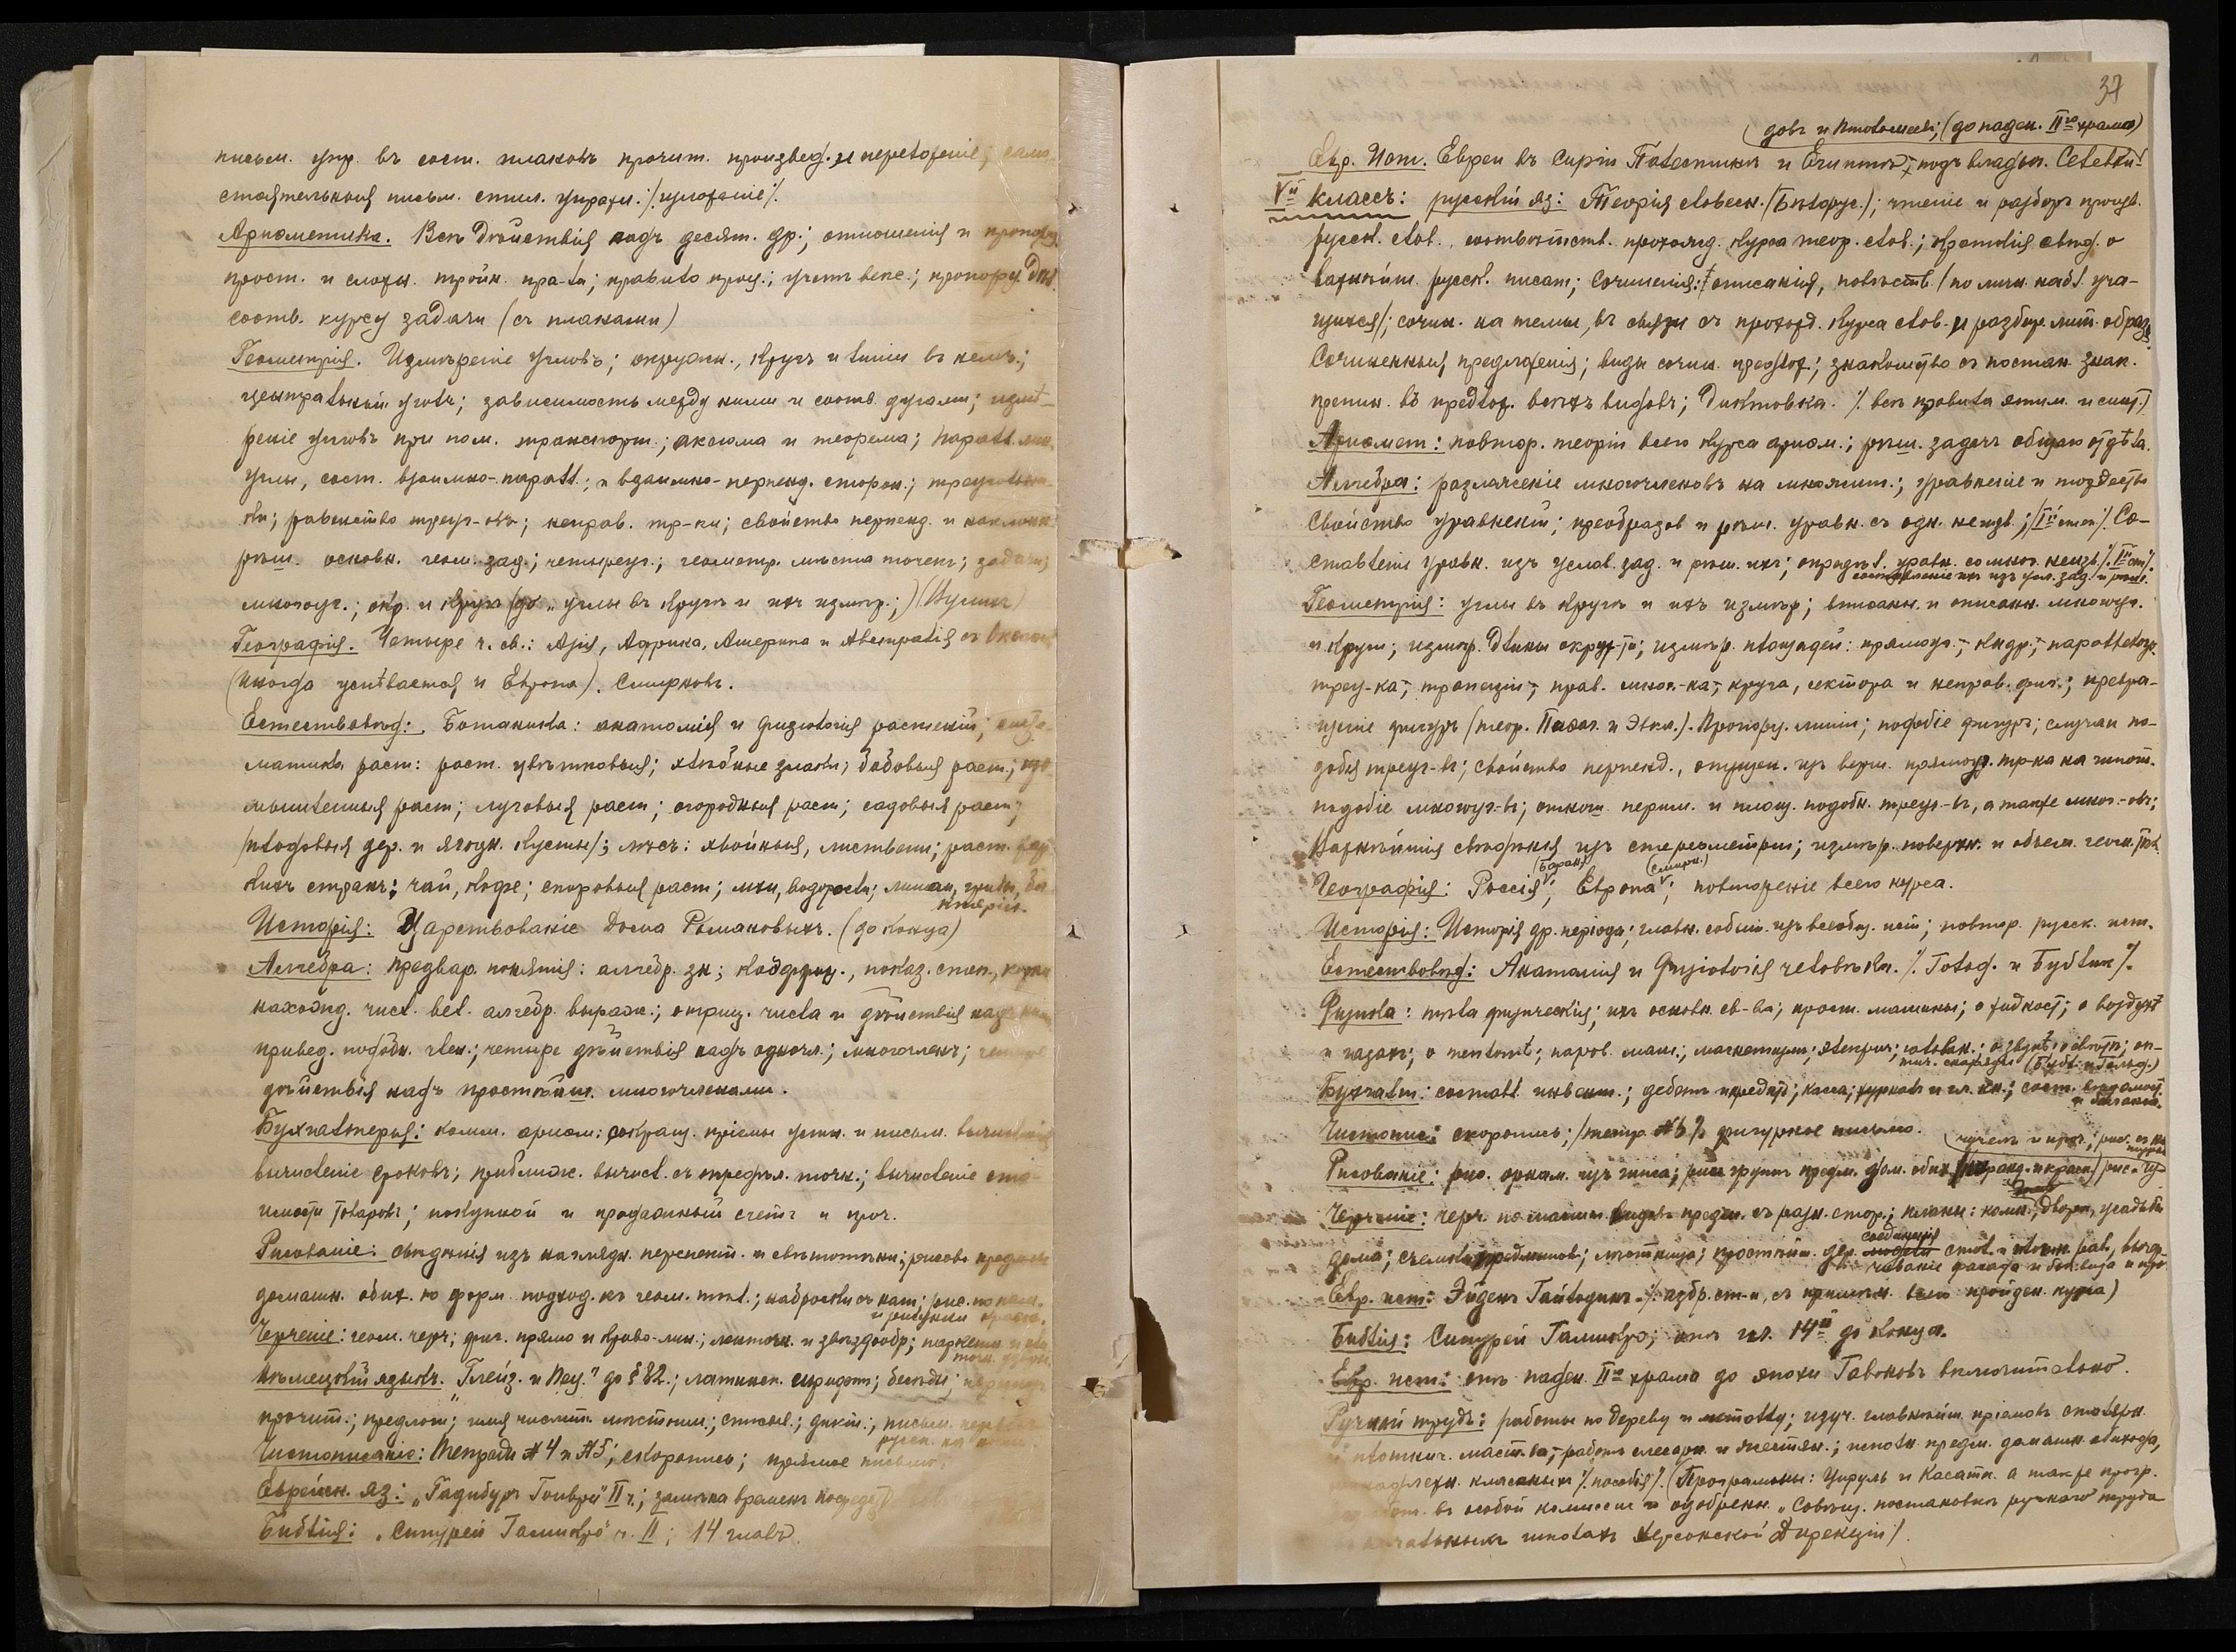 письм. упр. въ сост. плановъ прочит. произвед. и переложеніе; само-
стоятельныя письм. стил. упражн. /:изложеніе:/.
Ариѳметика. Всѣ дѣйствія надъ десят. др.; отношенія и пропорц.
прост. и сложн. тройн. пра-ла; правило проц.; учетъ векс.; пропорц. дѣл.
соотв. курсу задачи (съ планами)
Геометрія. Измѣреніе угловъ; окружн., кругъ и линіи въ немъ;
центральный уголъ; зависимость между ними и соотв. дугами; измѣ-
реніе угловъ при пом. транспорт.; аксіома и теорема; паралл. лин.
углы, сост. взаимно-паралл. и взаимно-перпенд. сторон.; треугольни-
ки; равенство треуг-овъ; неправ. тр-ки; свойство перпенд. и наклонн.
рѣш. основн. геом. зад.; четыреуг.; геометр. мѣста точекъ; задачи;
многоуг.; окр. и кругъ (до "углы въ кругѣ и ихъ измѣр.;)
Географія. Четыре ч. св.: Азія, Африка, Америка и Австралія съ
(иногда успѣвается и Европа). Смирновъ.
Естествовѣд: Ботаника: анатомія и физіологія растеній; систе-
матика раст: раст. цвѣтковыя; хлѣбные злаки; бобовыя раст.; про-
мышленныя раст; луговыя раст; огородныя раст; садовыя раст;
/плодовыя дер. и ягодн. кусты/; лѣсъ: хвойныя, листвен; раст.
кихъ странъ: чай, кофе; споровыя раст; мхи, водоросли; лишаи, грибы, ба-
ктеріи.
Исторія: Царствованіе Дома Романовыхъ. (до конца)
Алгебра: предвар. понятія: алгебр. зн; коэффиц., показ. степ., корни
нахожд. числ. вел. алгебр. выраж.; отриц. числа и дѣйствія надъ ними
привед. подобн. член.; четыре дѣйствія надъ одночл.; многочленъ;
дѣйствія надъ простѣйш. многочленами.
Бухгалтерія: комм. ариѳм: сокращ. пріемы устн. и письм. вычисленія
вычисленіе сроковъ; приближ. вычисл. съ опредѣл. точн.; вычисленіе сто-
имости товаровъ; покупной и продажный счетъ и проч.
Рисованіе: свѣдѣнія изъ наглядн. перспект. и свѣтотѣни; рисов. предметъ
домашн. обих. по форм. подход. къ геом. тѣл.; наброски съ нат; рис. по пам.
и рисунки
Черченіе: геом. черч; фиг. прямо и криво-лин.; ленточн. и звѣздообр; паркетн.
Нѣмецкій языкъ. "Глейз. и Пец." до § 82.; латинск. шрифт; бесѣды;
прочит.; предлог; имя числит. мѣстоим; списыв.; дикт.; письм.
русск. на
Чистописаніе: тетради №4 и №5; скоропись; прямое письмо.
Еврейск. яз: "Гадибуръ Гоиври" II ч.; замѣна временъ
Библія: "Сипурей Гамикро" ч. II; 14 главъ.
37
довъ и Птоломеевъ; (до паден. IIго храма)
Евр. Ист. Евреи въ Сиріи Палестинѣ и Египтѣ, подъ владыч. Селевки-
Vй классъ: русскій яз: Теорія словесн. (Бѣлорус.); чтеніе и разборъ произв.
русск. слов. соотвѣтств. прохожд. курса теор. слов.; краткія свѣд. о
важнѣйш. русск. писат; сочиненія: описанія, повѣств. /по личн. набл. уча-
щихся/; сочин. на темы, въ связи съ прохожд. курса слов. и разбор. лит. образ.
Сочиненныя предложенія; виды сочин. предлож.; знакомство съ постан. знак.
препин. въ предлож. всѣхъ видовъ; диктовка. /:всѣ правила этим. и синт.:/
Ариѳмет: повтор. теоріи всего курса ариѳм.; рѣш. задачъ общаго отдѣла.
Алгебра: разложеніе многочленовъ на множит.; уравненіе и тождество
Свойство уравненій; преобразов и рѣш. уравн. съ одн. неизв.; /Iй степ./. Со-
ставленіе уравн. изъ услов. зад. и рѣш. ихъ; опредѣл. уравн. со мног. неизв. /:Iй ст:/.
составленіе ихъ изъ усл. зад. и рѣш.
Геометрія: углы въ кругѣ и ихъ измѣр; вписанн. и описанн. многоуг.
и круги; измѣр. длины окруж-ти; измѣр. площадей: прямоуг.-, квдр.-, параллелогр.
треу-ка-, трапеціи-, прав. мног.-ка-, круга, сектора и неправ. фиг.; превра-
щеніе фигуръ (теор. Пиѳаг. и Эвкл.). Пропорц. линіи; подобіе фигуръ; случаи по-
добія треуг-въ; свойство перпенд., опущен. изъ верш. прямоуг. тр-ка на гипот.
подобіе многоуг-въ; отнош. перим. и площ. подобн. треуг-въ, а также мног.-овъ;
Важнѣйшія свѣдѣнія изъ стереометріи; измѣр. поверхн. и объем. геом. тѣл.
(Баран) (Смирн.)
Географія: Россія; Европа; повтореніе всего курса.
Исторія: Исторія др. періода; главн. событ. изъ всеобщ. ист; повтор. русск. ист.
Естествовѣд: Анатомія и Физіологія человѣка. /:Голод. и Будтин:/.
Физика: тѣла физическія; ихъ основн. св-ва; прост. машины; о жидкост; о воздухѣ
и газахъ; о теплотѣ; паров. маш.; магнетизмъ; электрич; гальван.; о звукѣ; о свѣтѣ; оп-
тич. снаряды
Бухгалт: составл. инвент.; дебетъ и кредитъ; касса; журналъ и гл. кн.; сост. вѣдомост.
и баланса.
Чистопис: скоропись; /тетр. №6/ фигурное письмо.
Рисованіе: рис. орнам. изъ гипса; рис. группъ предм. дом. обих.
Черченіе: черч. по масшт. видовъ предм. съ разн. стор.; планы: комн., двора, усадьбы
дома; съемка; простѣйш. дер. соединенія стол. и плотн. раб., вычер-
чиваніе фасада и бок. вида и пр.
Евр. ист: Эйденъ Гайтодимъ. /:избр. ст-и, съ примѣч. всего пройден. курса)
Библія: Сипурей Гамикро; отъ гл. 14й до конца.
Евр. ист: отъ паден. IIго храма до эпохи Гаоновъ включительно.
Ручной трудъ: работы по дереву и металлу; изуч. главнѣйш. пріемовъ столярн.
и плотнич. маст.-ва, работъ слесарн. и жестян.; исполн. предм. домашн. обихода,
класныхъ /:пособія:/. (Программы: Цируль и Касатк. а также прогр.
въ особой комиссіи и одобренн. "Совѣщ. постановкѣ ручного труда
начальныхъ школахъ Херсонской Дирекціи/.